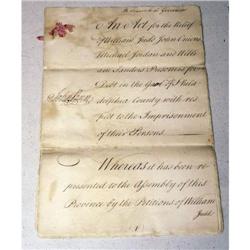 An Act for the Relief
of William Judd John Owens
Michael Jordan and Will-
iam Sanders Prisoners for
Debt in the Goal of Phila-
delphia County with res
pect to the Imprisonment
of their Persons
John Penn
Whereas it has been re-
presented to the Assembly of this
Province by the Petitions of William
Judd
(1)